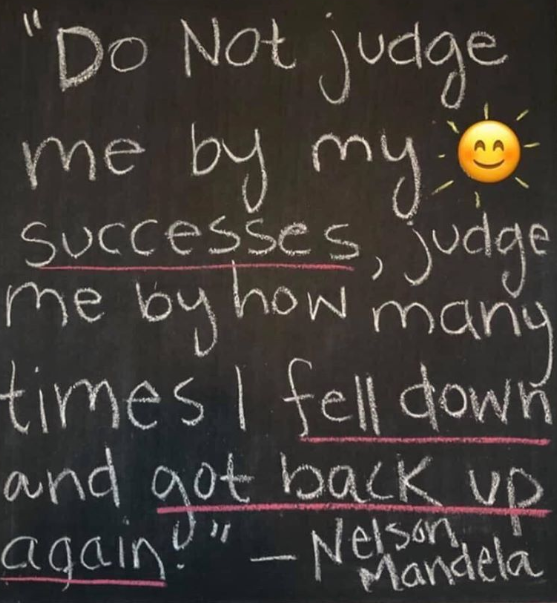 "Do Not judge
me by my
successes, judge
me by how many
times I fell down
and got back up
again!" — Nelson
Mandela